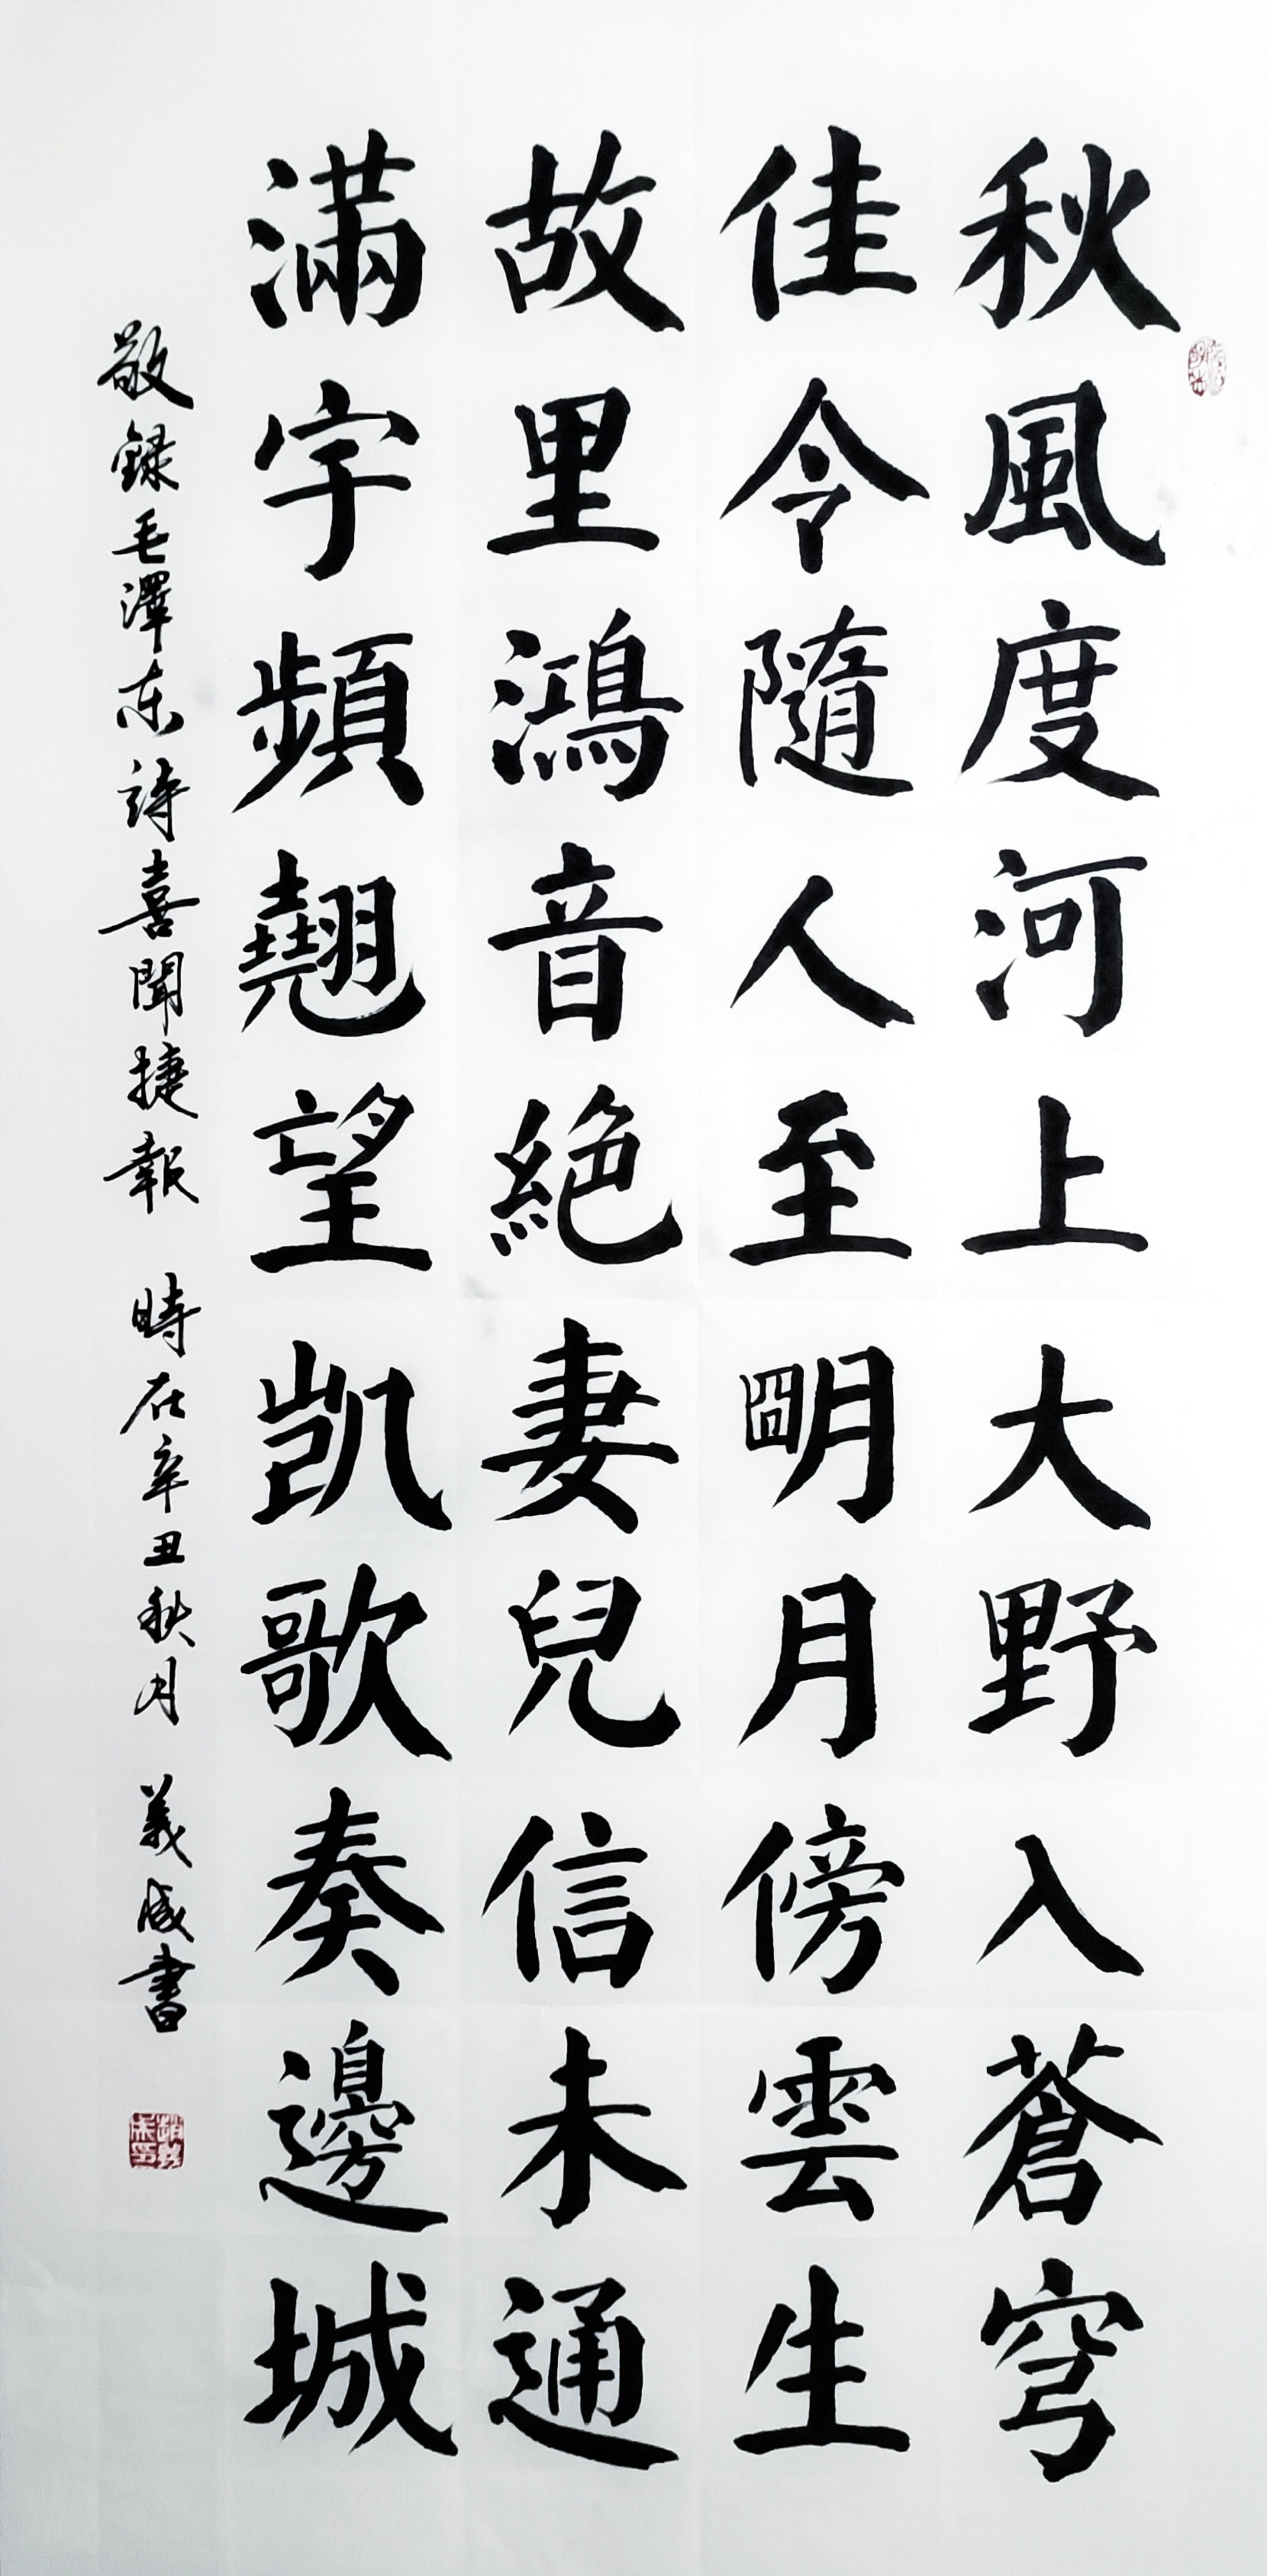 秋風度河上大野入蒼穹
佳令隨人至朙月傍雲生
故里鴻音絶妻兒信未通
滿宇頻翹望凯歌奏邊城
敬録毛澤东詩喜聞捷報 時在辛丑秋月 義成書